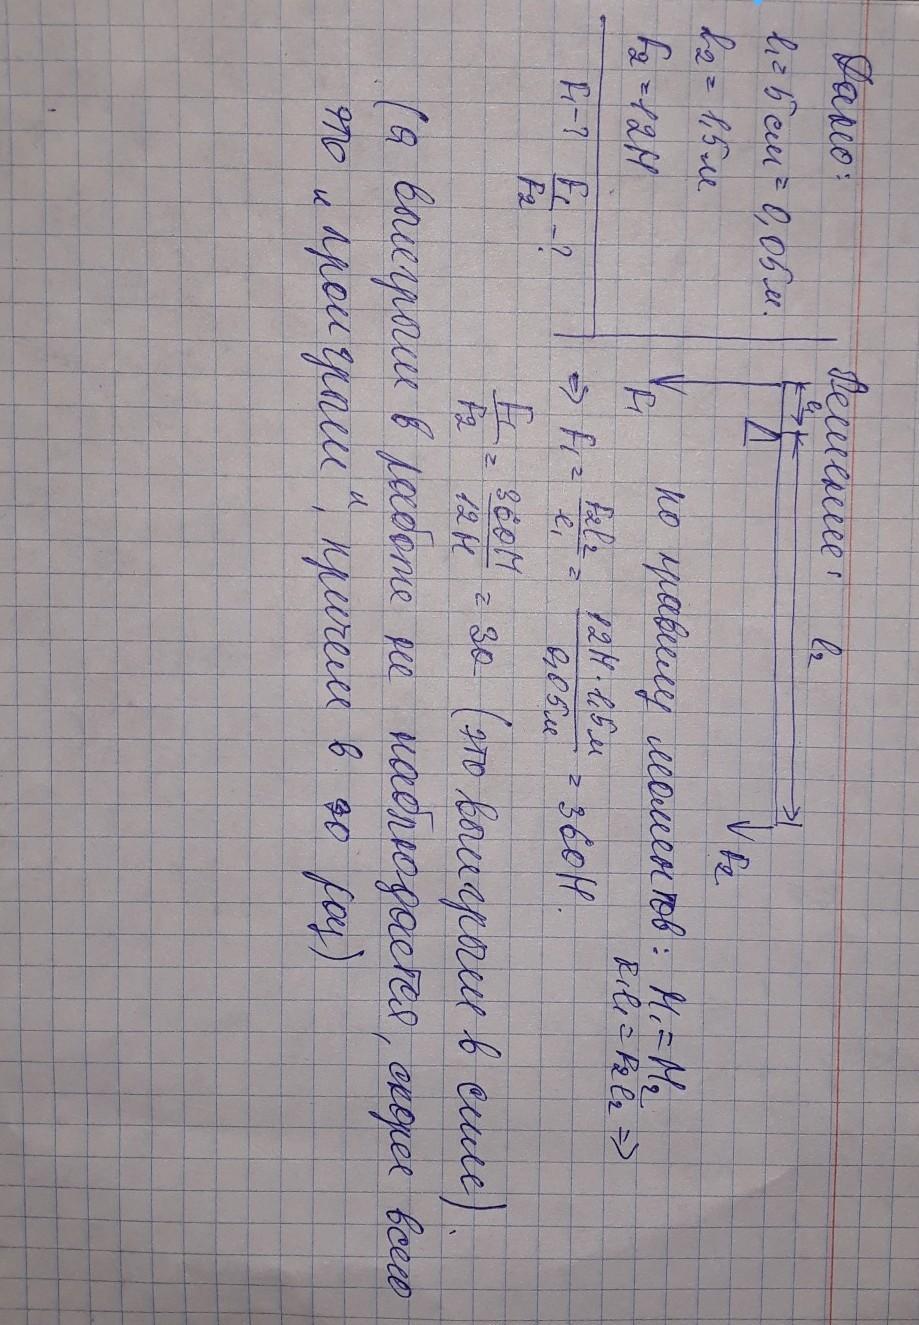 Дано:
l₁ = 5 см = 0,05 м.
l₂ = 1,5 м
F₂ = 12 Н
F₁ - ? F₁/F₂ - ?
Решение:
l₁
l₂
F₁
F₂
по правилу моментов: M₁ = M₂
F₁l₁ = F₂l₂ ⇒
⇒ F₁ = F₂l₂/l₁ = 12Н · 1,5м/0,05м = 360Н.
F₁/F₂ = 360Н/12Н = 30 (это выигрыш в силе).
(а выигрыш в работе не наблюдается, скорее всего
это и проигрыш, причем в 30 раз)